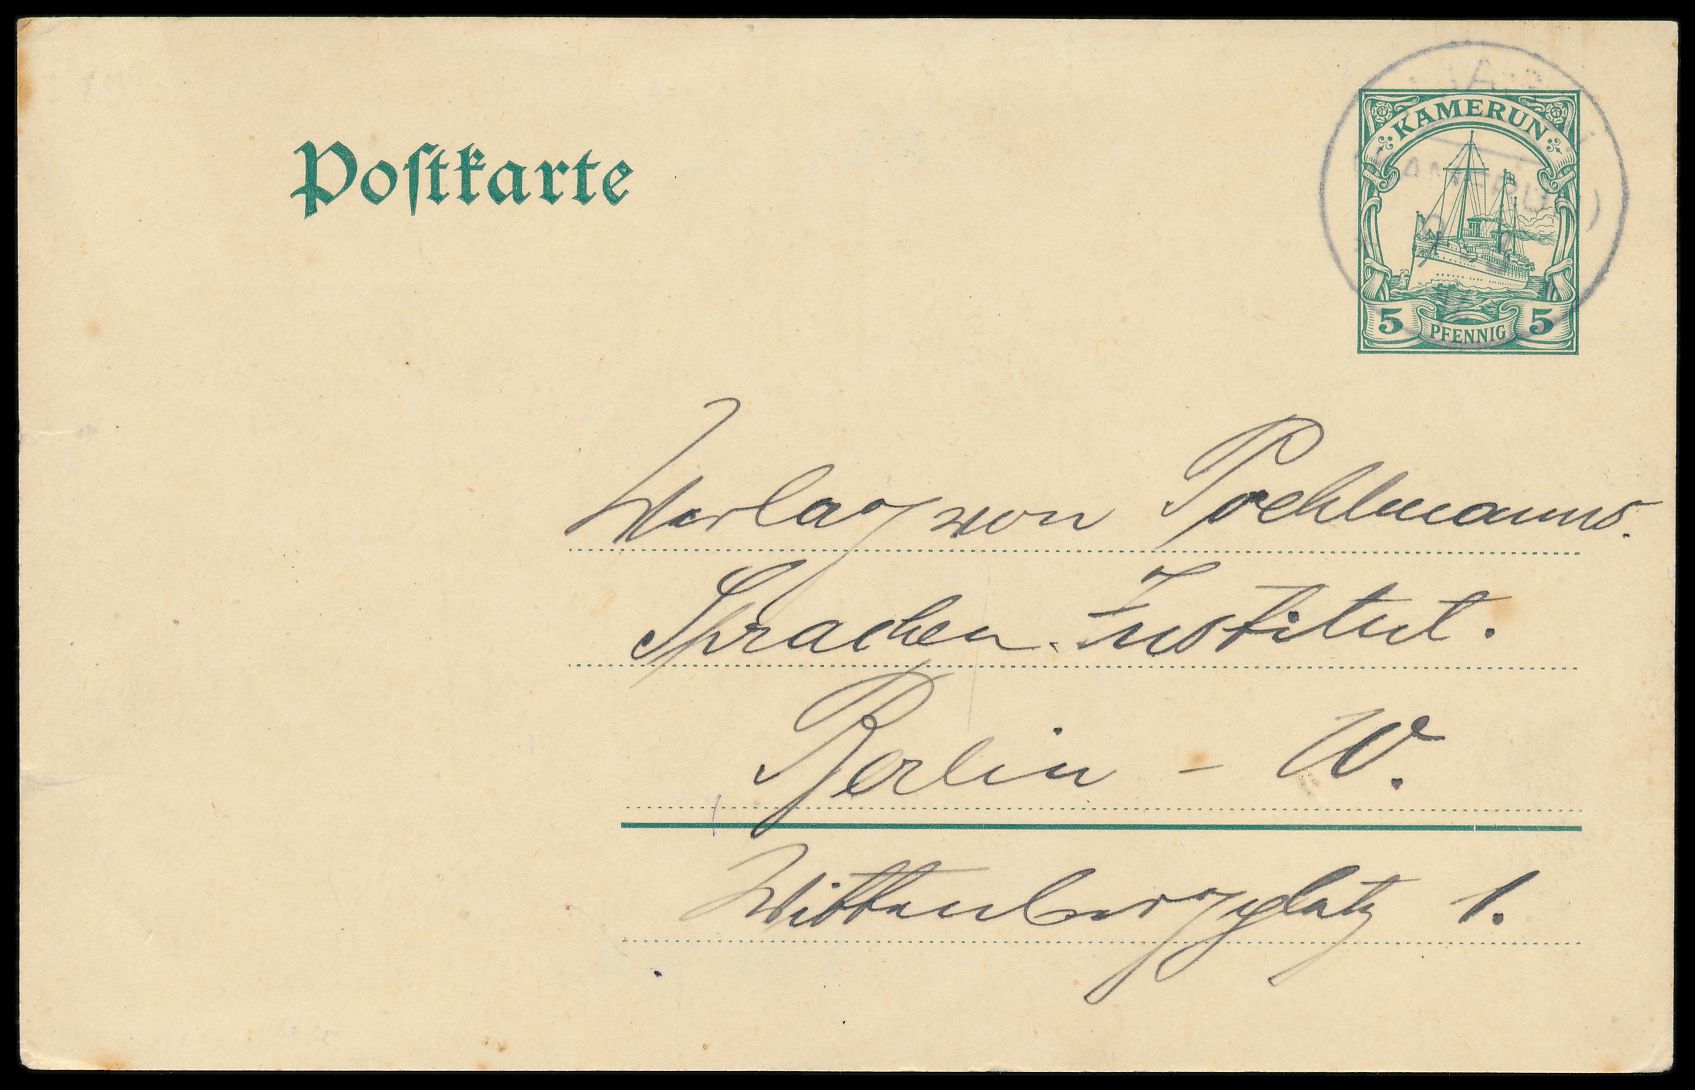 Postkarte
KAMERUN
5 PFENNIG 5
Verlag von Poehlmanns.
Sprachen-Institut.
Berlin - W.
Wittenbergplatz 1.